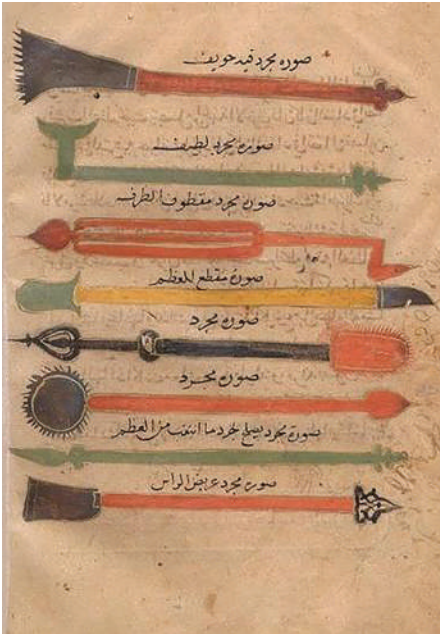 صوره مجرد فيه تجويف
صوره مجرد لطيف
صوره مجرد معطوف الطرف
صورة مقطع للعظم
صوره مجرد
صوره مجرد
صورة مجرد يصلح لجرد ما انثقب من العظم
صوره مجرد عريض الراس